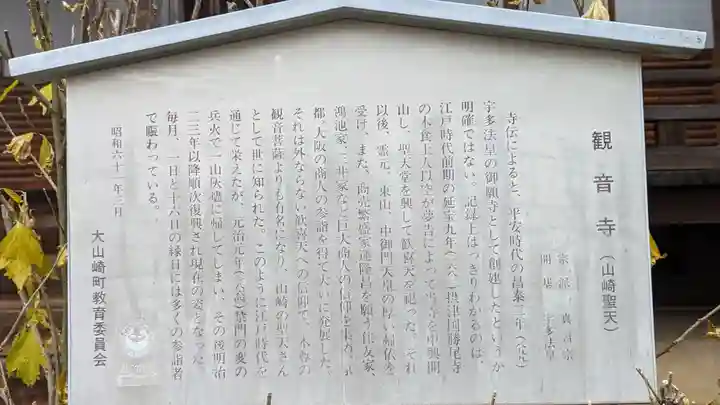 観音寺(山崎聖天)
宗派 真言宗
開基 宇多法皇
寺伝によると、平安時代の昌泰二年(八九九)
宇多法皇の御願寺として創建したというが
明確ではない。記録上はっきりわかるのは、
江戸時代前期の延宝九年(一六八一)摂津国勝尾寺
の木食上人以空が夢告によって当寺を中興開
山し、聖天堂を興して歓喜天を祀った。それ
以後、霊元、東山、中御門天皇の厚い帰依を
受け、また、商売繁盛家運隆昌を願う住友家、
鴻池家、三井家など巨大商人の信仰を集め、京
都、大阪の商人の参詣を得て大いに発展した。
それは外ならない歓喜天への信仰で、本尊の
観音菩薩よりも有名になり、山崎の聖天さん
として世に知られた。このように江戸時代を
通じて栄えたが、元治元年(一八六四)禁門の変の
兵火で一山灰燼に帰してしまい、その後明治
二三年以降順次復興され現在の姿となった。
毎月、一日と十六日の縁日には多くの参詣者
で賑わっている。
昭和六十一年三月
大山崎町教育委員会